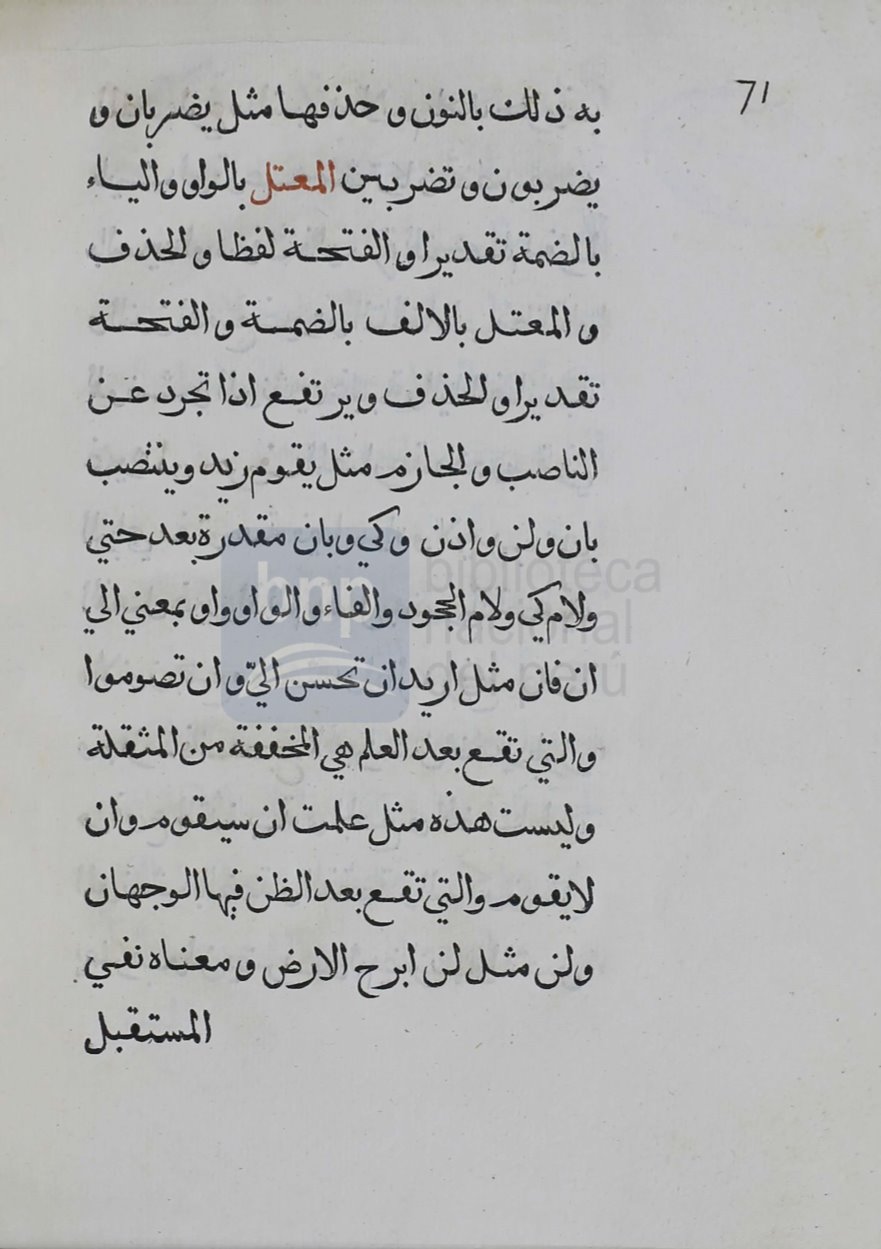 71
به ذلك بالنون و حذفها مثل يضربان و
يضربون و تضربين المعتل بالواو والياء
بالضمة تقديرا و الفتحة لفظا و الحذف
و المعتل بالالف بالضمة و الفتحة
تقديرا و الحذف و يرتفع اذا تجرد عن
الناصب و الجازم مثل يقوم زيد وينتصب
بان ولن واذن وكي وبان مقدرة بعد حتي
ولام كي ولام الجحود والفاء و الواو واو بمعني الي
ان فان مثل اريد ان تحسن اليّ و ان تصوموا
والتي تقع بعد العلم هي المخففة من المثقلة
وليست هذه مثل علمت ان سيقوم وان
لايقوم والتي تقع بعد الظن فيها الوجهان
ولن مثل لن ابرح الارض و معناه نفي
المستقبل
bnp biblioteca
nacional
del perú